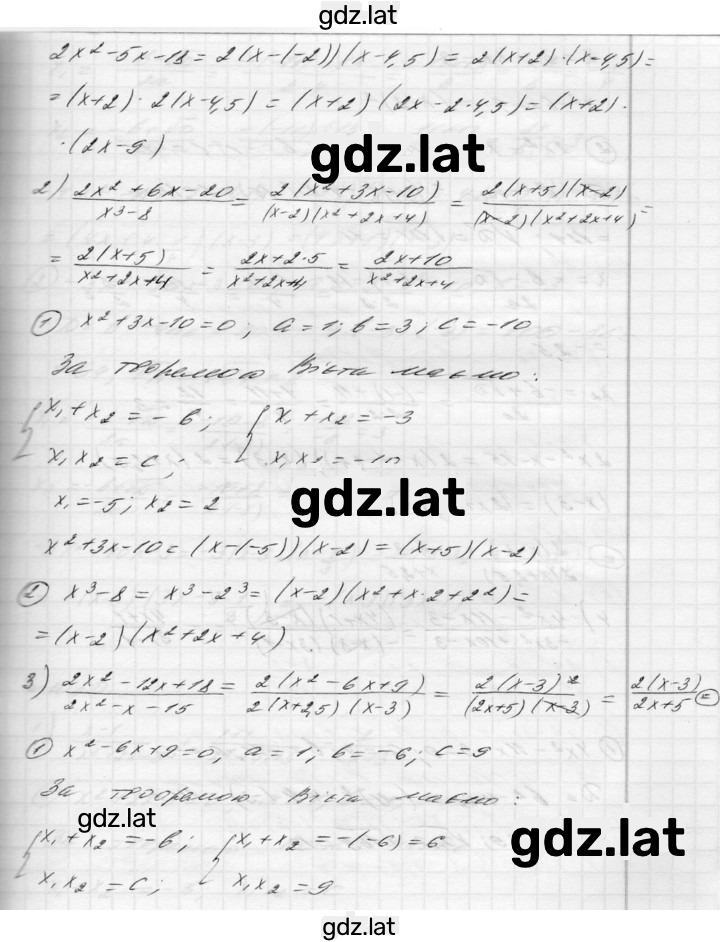 gdz.lat
2x² - 5x - 18 = 2(x-(-2))(x-4,5) = 2(x+2)·(x-4,5) =
= (x+2)·2(x-4,5) = (x+2)(2x-2·4,5) = (x+2)·
·(2x-9)
gdz.lat
2) (2x²+6x-20)/(x³-8) = 2(x²+3x-10)/((x-2)(x²+2x+4)) = 2(x+5)(x-2)/((x-2)(x²+2x+4)) =
= 2(x+5)/(x²+2x+4) = (2x+2·5)/(x²+2x+4) = (2x+10)/(x²+2x+4)
① x²+3x-10=0; a=1; b=3; c=-10
За теоремою Вієта маємо:
{x₁+x₂=-b; {x₁+x₂=-3
x₁x₂=c; x₁x₂=-10
gdz.lat
x₁=-5; x₂=2
x²+3x-10=(x-(-5))(x-2)=(x+5)(x-2)
② x³-8=x³-2³=(x-2)(x²+x·2+2²)=
=(x-2)(x²+2x+4)
3) (2x²-12x+18)/(2x²-x-15) = 2(x²-6x+9)/(2(x+2,5)(x-3)) = 2(x-3)²/((2x+5)(x-3)) = 2(x-3)/(2x+5) =
① x²-6x+9=0; a=1; b=-6; c=9
За теоремою Вієта маємо:
gdz.lat
gdz.lat
{x₁+x₂=-b; {x₁+x₂=-(-6)=6
x₁x₂=c; x₁x₂=9
gdz.lat